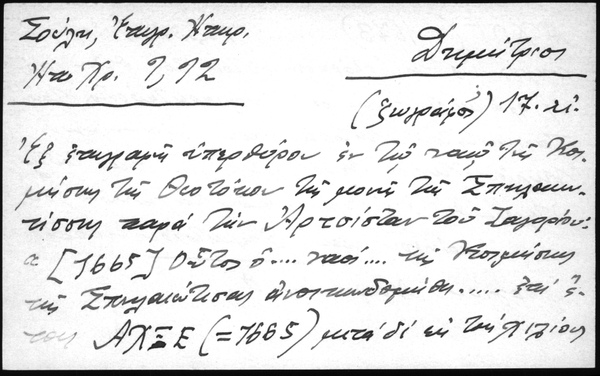 Σούλη, Ἐπιγρ. Ἠπειρ.
Δημήτριος
Ηπ Χρ. 9, 92
(ζωγράφος) 17. αἰ.
Ἐξ ἐπιγραφῆς ὑπερθύρου ἐν τῷ ναῷ τῆς Κοι-
μήσεως τῆς Θεοτόκου τῆς μονῆς τῆς Σπηλαιω-
τίσσης παρὰ τὴν Ἀρτσίσταν τοῦ Ζαγορίου:
α [1665] Οὗτος ὁ .... ναοί .... τῆς Κοιμήσεως
τῆς Σπηλαιωτίσσας ἀνοικωδομήθη ..... ἐπί ἔ-
τους ΑΧΞΕ (=1665) μετὰ δὲ ἐκ τοῦ χιλίους